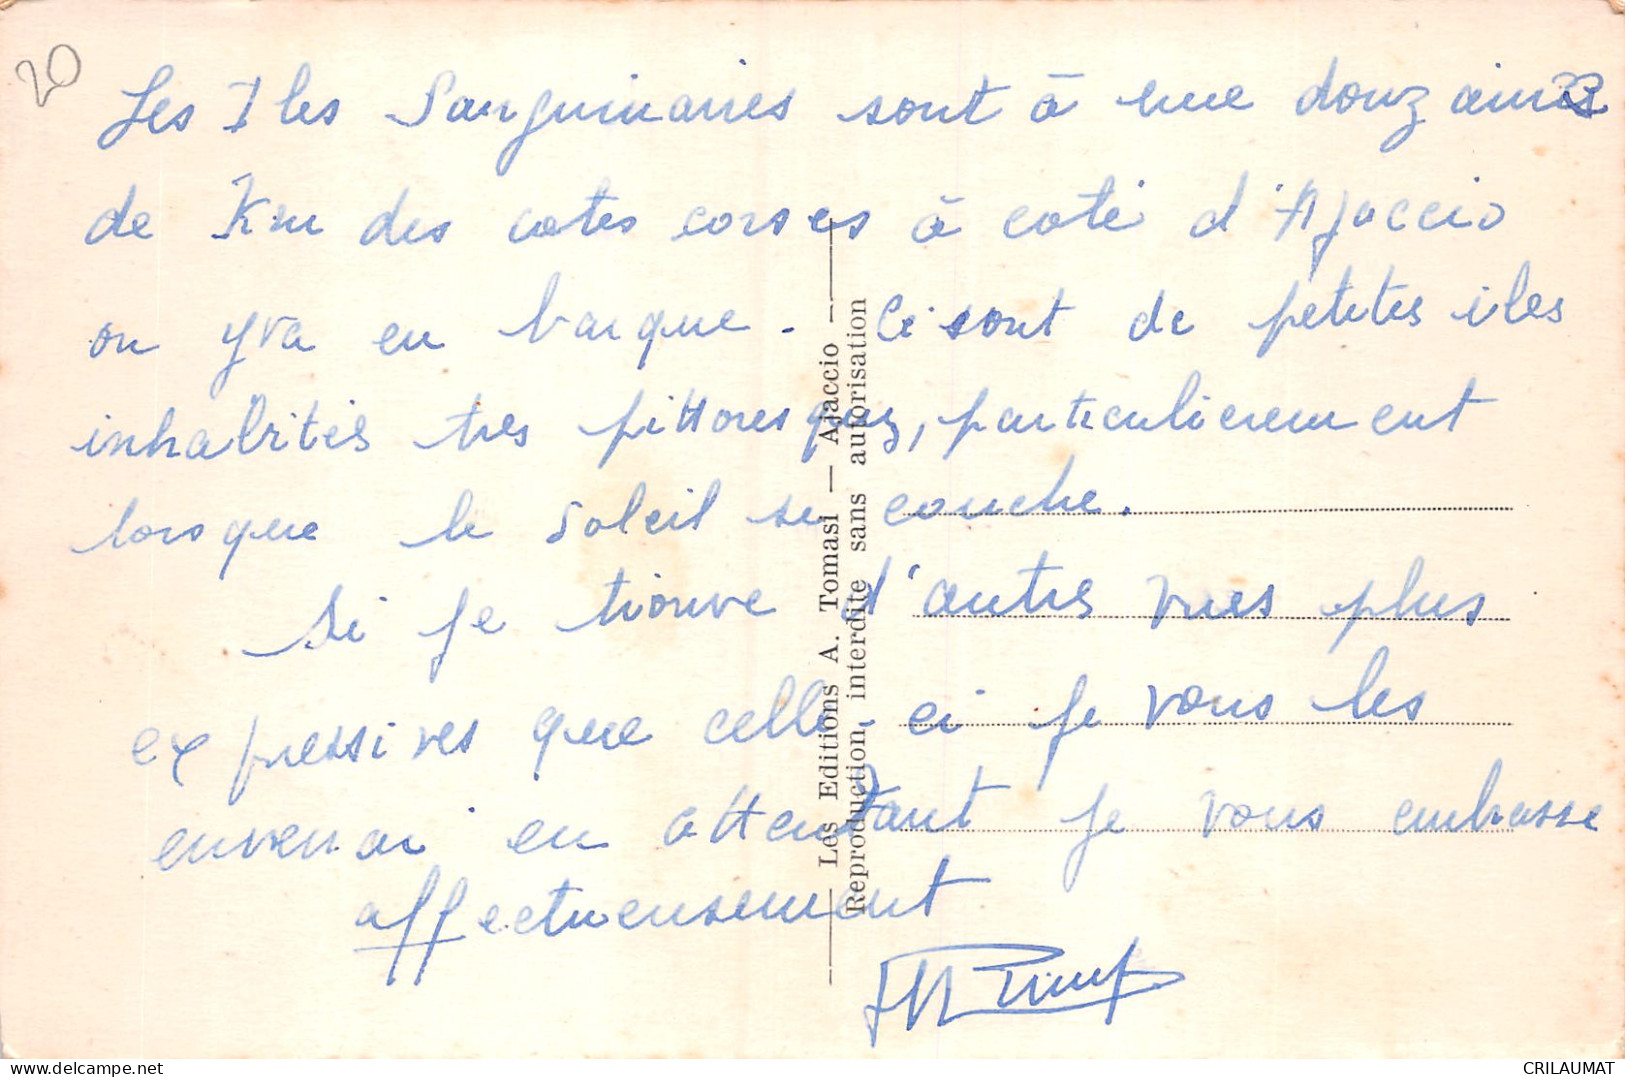 20
Les Iles Sanguinaires sont à une douzaines
de Km des cotes corses à coté d'Ajaccio
on y va en barque. Ce sont de petites iles
inhabités tres pittoresques, particulierement
lorsque le soleil se couche.
Si je trouve d'autres vues plus
expressives que celle-ci je vous les
enverrai en attendant je vous embrasse
affectueusement
Les Editions A. Tomasi — Ajaccio
Reproduction interdite sans autorisation
delcampe.net
CRILAUMAT